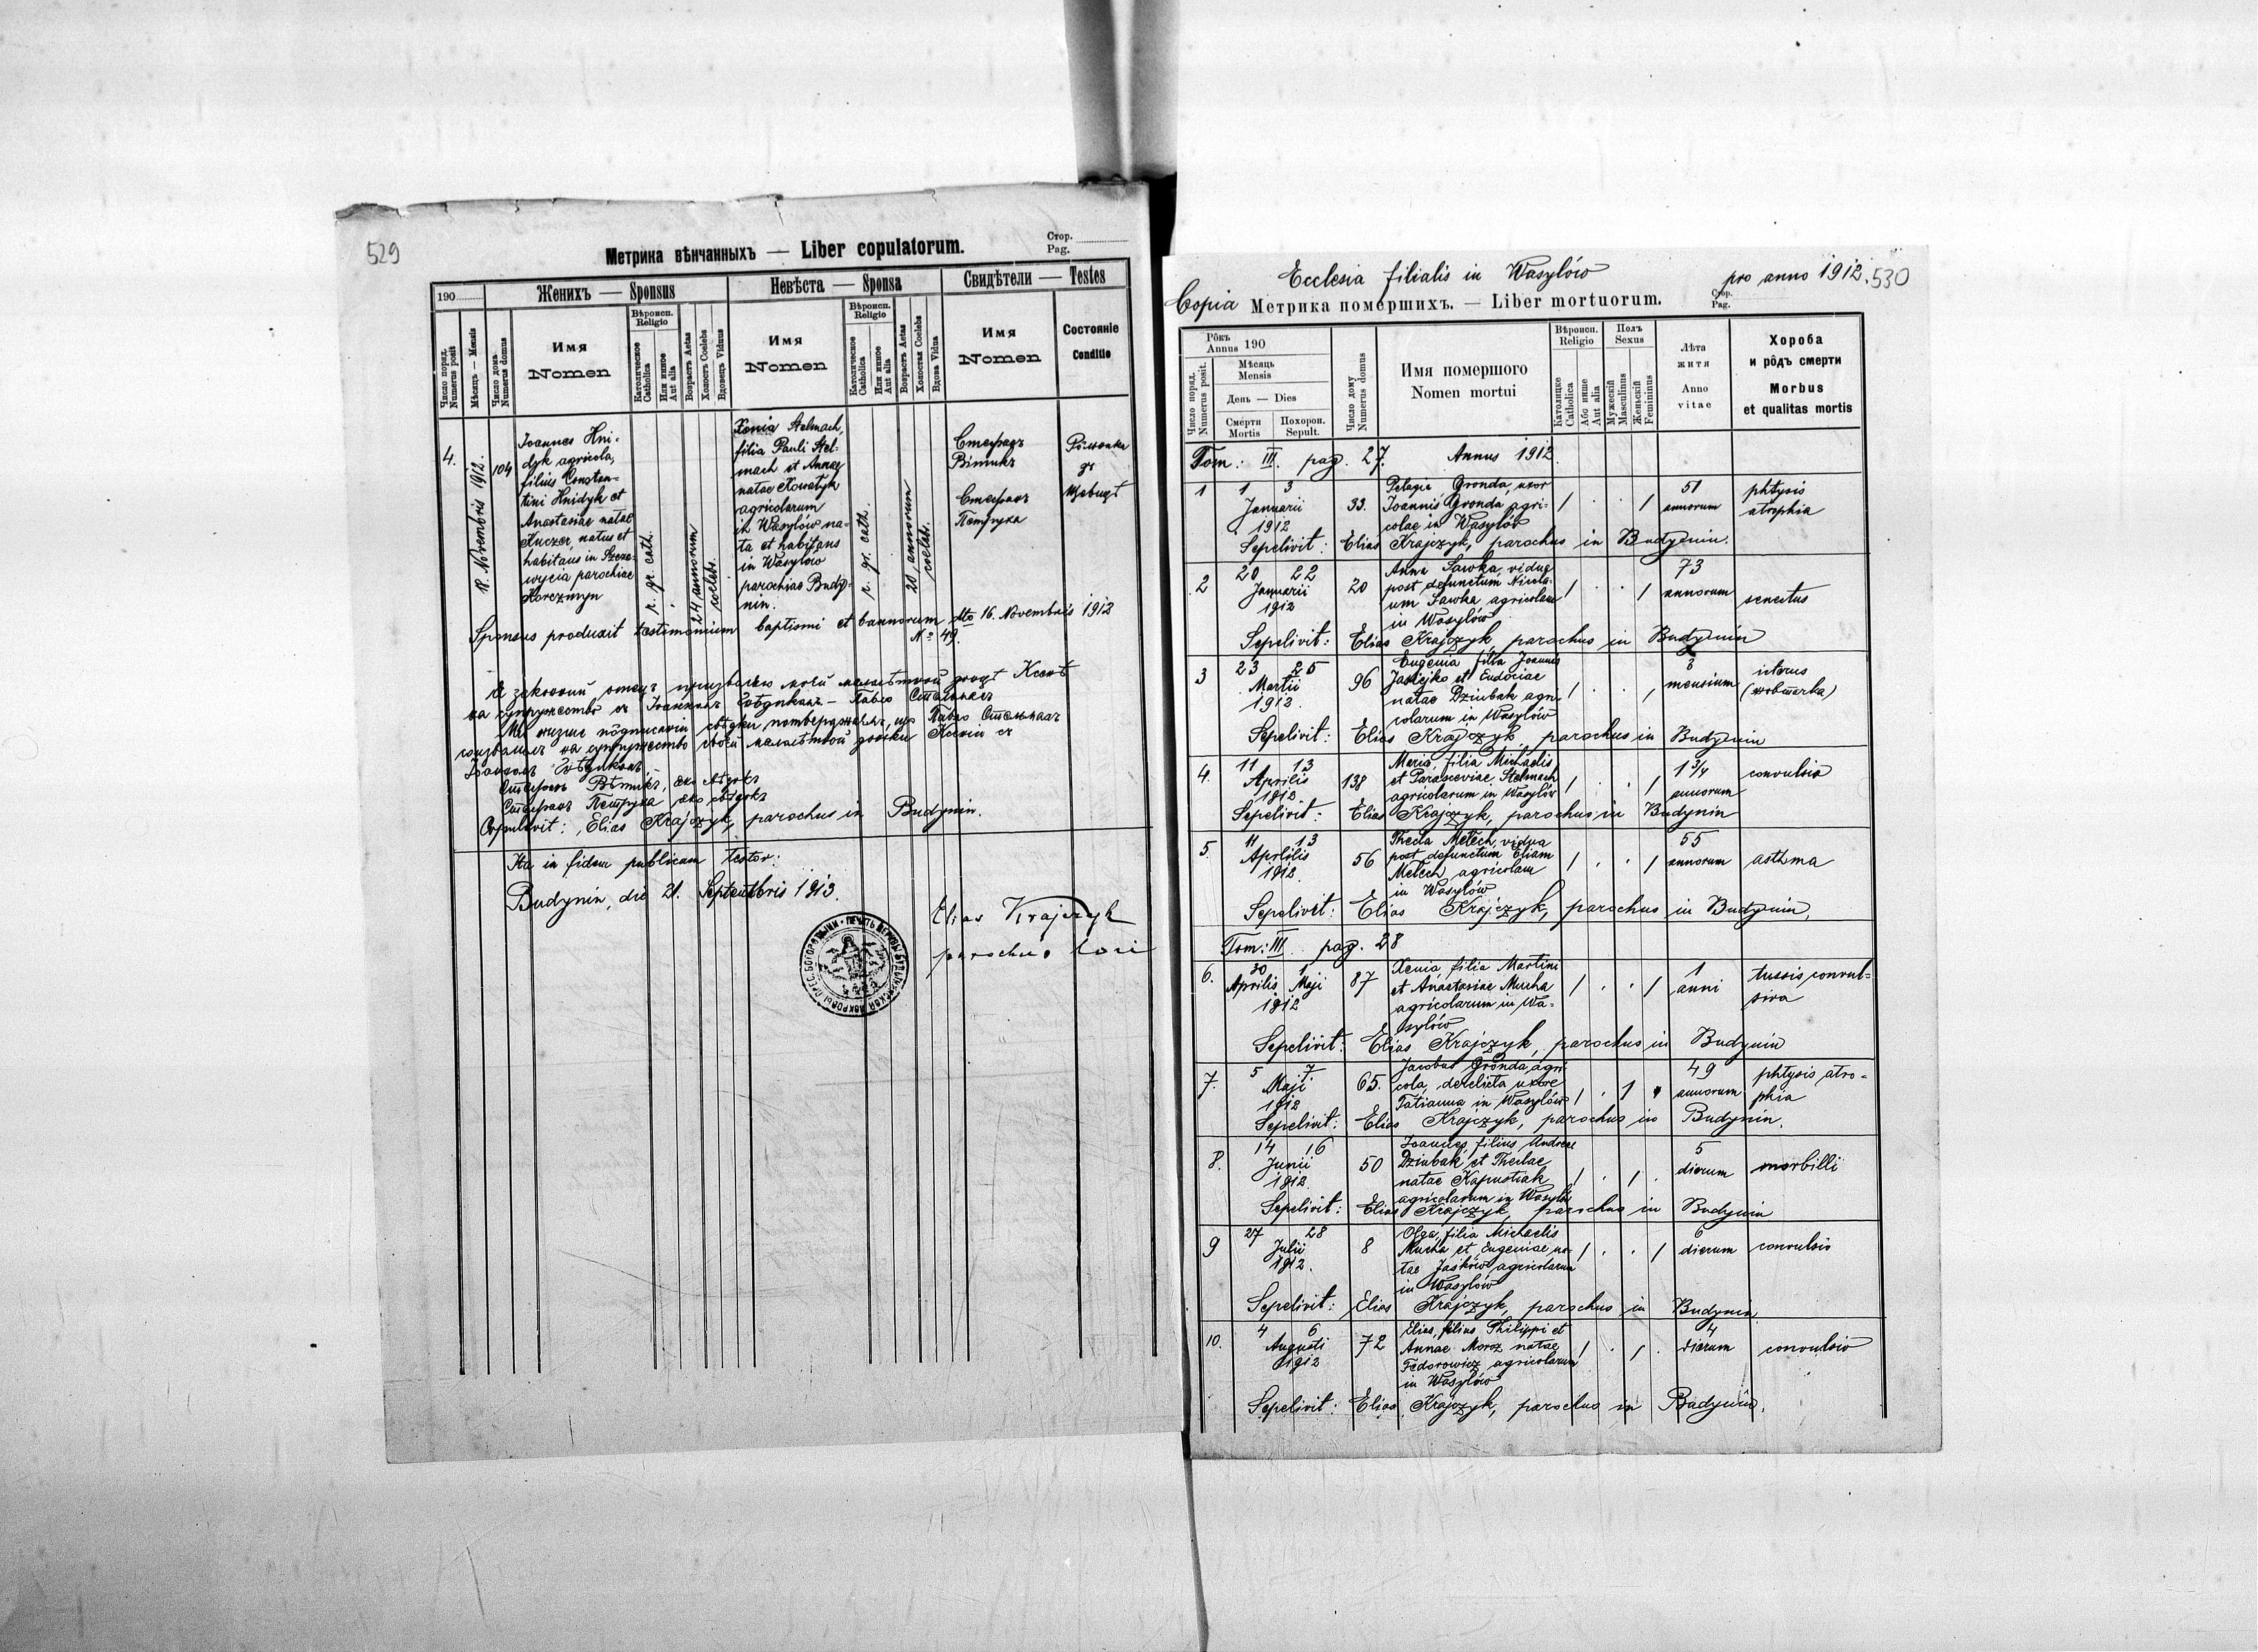 529
Метрика вѣнчанныхъ — Liber copulatorum.
Стор.
Pag.
190
Женихъ — Sponsus
Невѣста — Sponsa
Свидѣтели — Testes
Число поряд.
Numerus posit
Мѣсяць — Mensis
Число дома
Numerus domus
Имя
Nomen
Вѣроисп.
Religio
Католическое
Catholica
Или иное
Aut alia
Возрастъ Aetas
Холостъ Coelebs
Вдовецъ Viduus
Имя
Nomen
Вѣроисп.
Religio
Католическое
Catholica
Или иное
Aut alia
Возрастъ Aetas
Холостая Coelebs
Вдова Vidua
Имя
Nomen
Состояніе
Conditio
4.
18. Novembris 1912.
104
Joannes Hni-
dyk agricola,
filius Constan-
tini Hnidyk et
Anastasiae natae
Kuczer natus et
habitans in Szcze-
wycia parochiae
Korczmyn
r. gr. cath.
24 annorum
coelebs.
Xenia Stelmach,
filia Pauli Stel-
mach et Annae
natae Kowatyk
agricolarum
in Wasylów na-
ta et habitans
in Wasylów
parochiae Budy-
nin.
r. gr. cath.
20 annorum
coelebs.
Стефанъ
Вітикъ
Стефанъ
Петрука
Sponsus produxit testimonium baptismi et bannorum dto 16. Novembris 1912
No 49.
на супружество съ
Copulavit: Elias Krajczyk, parochus in Budynin.
Ita in fidem publicam testor:
Budynin, die 21. Septembris 1913.
Elias Krajczyk
parochus loci
Ecclesia filialis in Wasylów
pro anno 1912.
530
Copia
Метрика помершихъ. — Liber mortuorum.
Стор.
Pag.
Число поряд.
Numerus posit.
Рôкъ
Annus 190
Мѣсяць
Mensis
День — Dies
Смерти
Mortis
Похорон.
Sepult.
Число дому
Numerus domus
Имя помершого
Nomen mortui
Вѣроисп.
Religio
Католицке
Catholica
Або инше
Aut alia
Полъ
Sexus
Мужескій
Masculinus
Женьскій
Femininus
Лѣта
житя
Anno
vitae
Хороба
и рôдъ смерти
Morbus
et qualitas mortis
Tom.: III. pag. 27. Annus 1912.
1
1 3
Januarii
1912
33.
Pelagia Gronda, uxor
Joannis Gronda, agri-
colae in Wasylów
51
annorum
phtysis
atrophia
Sepelivit: Elias Krajczyk, parochus in Budynin.
2
20 22
Januarii
1912
20
Anna Sawka, vidua
post defunctum Nicola-
um Sawka agricolam
in Wasylów
73
annorum
senectus
Sepelivit: Elias Krajczyk, parochus in Budynin
3
23 25
Martii
1912.
96
Eugenia filia Joannis
Jaskejko et Eudociae
natae Dziubak agri-
colarum in Wasylów
3
mensium
icterus
(жовтачка)
Sepelivit: Elias Krajczyk parochus in Budynin
4.
11 13
Aprilis
1912
138
Maria, filia Michaelis
et Parasceviae Stelmach
agricolarum in Wasylów
1 3/4
annorum
convulsio
Sepelivit: Elias Krajczyk, parochus in Budynin
5.
11 13
Aprilis
1912.
56
Thecla Metech, vidua
post defunctum Eliam
Metech, agricolam
in Wasylów
55
annorum
asthma
Sepelivit: Elias Krajczyk, parochus in Budynin.
Tom: III. pag. 28
6.
30 1
Aprilis Maji
1912
87
Xenia, filia Martini
et Anastasiae Mucha
agricolarum in Wa-
sylów
1
anni
tussis convul-
siva
Sepelivit: Elias Krajczyk, parochus in Budynin
7.
5 7
Maji
1912
65.
Jacobus Gronda, agri-
cola, derelicta uxore
Tatianna in Wasylów
49
annorum
phtysis atro-
phia
Sepelivit: Elias Krajczyk, parochus in Budynin.
8.
14 16
Junii
1912.
50
Joannes, filius Andreae
Dziubak et Theclae
natae Kapustiak
agricolarum in Wasylów
5
dierum
morbilli
Sepelivit: Elias Krajczyk, parochus in Budynin
9
27 28
Julii
1912.
8
Olga, filia Michaelis
Mucha et Eugeniae na-
tae Jasków agricolarum
in Wasylów
6
dierum
convulsio
Sepelivit: Elias Krajczyk, parochus in Budynin.
10.
4 6
Augusti
1912
72
Elias, filius Philippi et
Annae Moroz natae
Fedorowicz agricolarum
in Wasylów
4
dierum
convulsio
Sepelivit: Elias Krajczyk, parochus in Budynin.